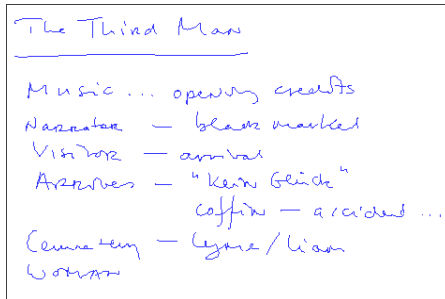 The Third Man
Music ... opening credits
Narrator — black market
Visitor — arrival
Arrives — "Kein Glück"
coffin — accident ...
Cemetery — Lyme / Liam
Woman